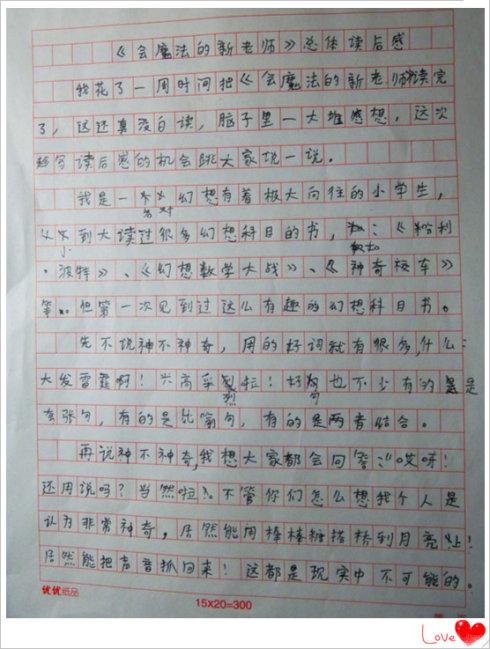 《会魔法的新老师》总体读后感
我花了一周时间把《会魔法的新老师》读完
了，这还真没白读，脑子里一大堆感想，这次
趁写读后感的机会跟大家说一说。
我是一个对幻想有着极大向往的小学生，
从小到大读过很多幻想科目的书，如：《哈利
·波特》、《幻想数学大战》、《神奇校车》
等。但第一次见到过这么有趣的幻想科目书。
先不说神不神奇，用的好词就有很多，什么：
大发雷霆啊！兴高采烈啦！好句也不少有的是
夸张句，有的是比喻句，有的是两者结合。
再说神不神奇，我想大家都会回答：“哎呀！
还用说吗？当然啦！”不管你们怎么想我个人是
认为非常神奇，居然能用棒棒糖搭桥到月亮上！
居然能把声音抓回来！这都是现实中不可能的。
优优纸品
15×20=300
Love